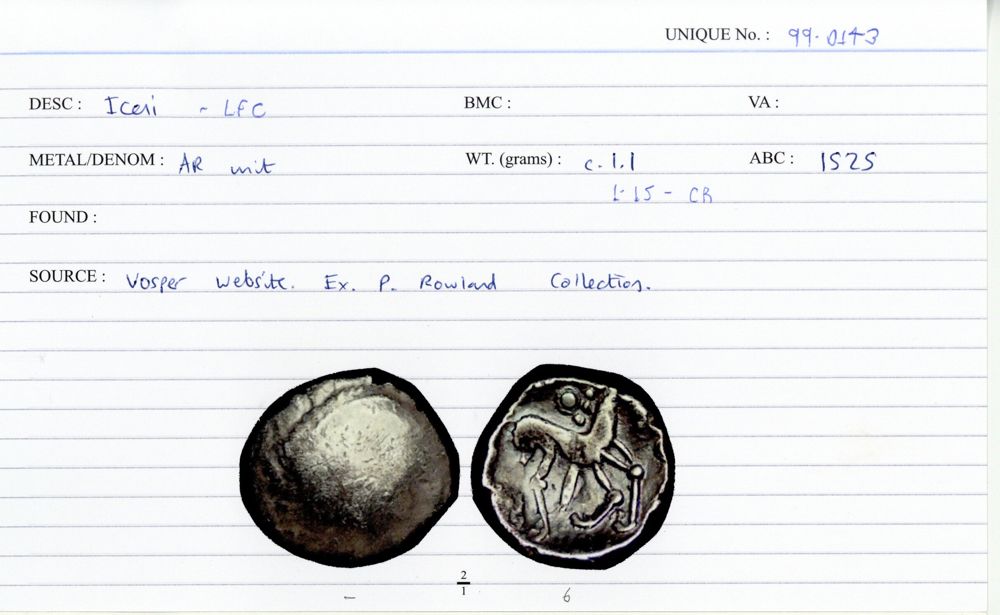 UNIQUE No. : 99.0143
DESC : Iceni - LFC BMC : VA :
METAL/DENOM : AR unit WT. (grams) : c. 1.1 ABC : 1525
1.15 - CR
FOUND :
SOURCE : Vosper website. Ex. P. Rowland Collection.
2
1
- 6